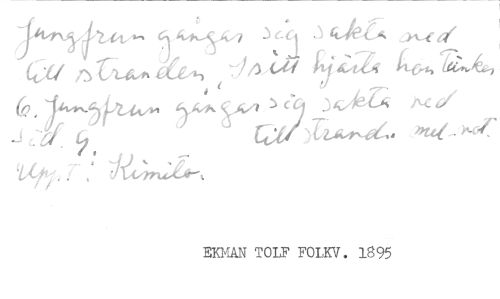 Jungfrun gångar sig sakta ned
till stranden, I sitt hjärta hon tänker
6. Jungfrun gångar sig sakta ned
sid. 9. till strand. mel. not.
Uppt: Kimito.
EKMAN TOLF FOLKV. 1895